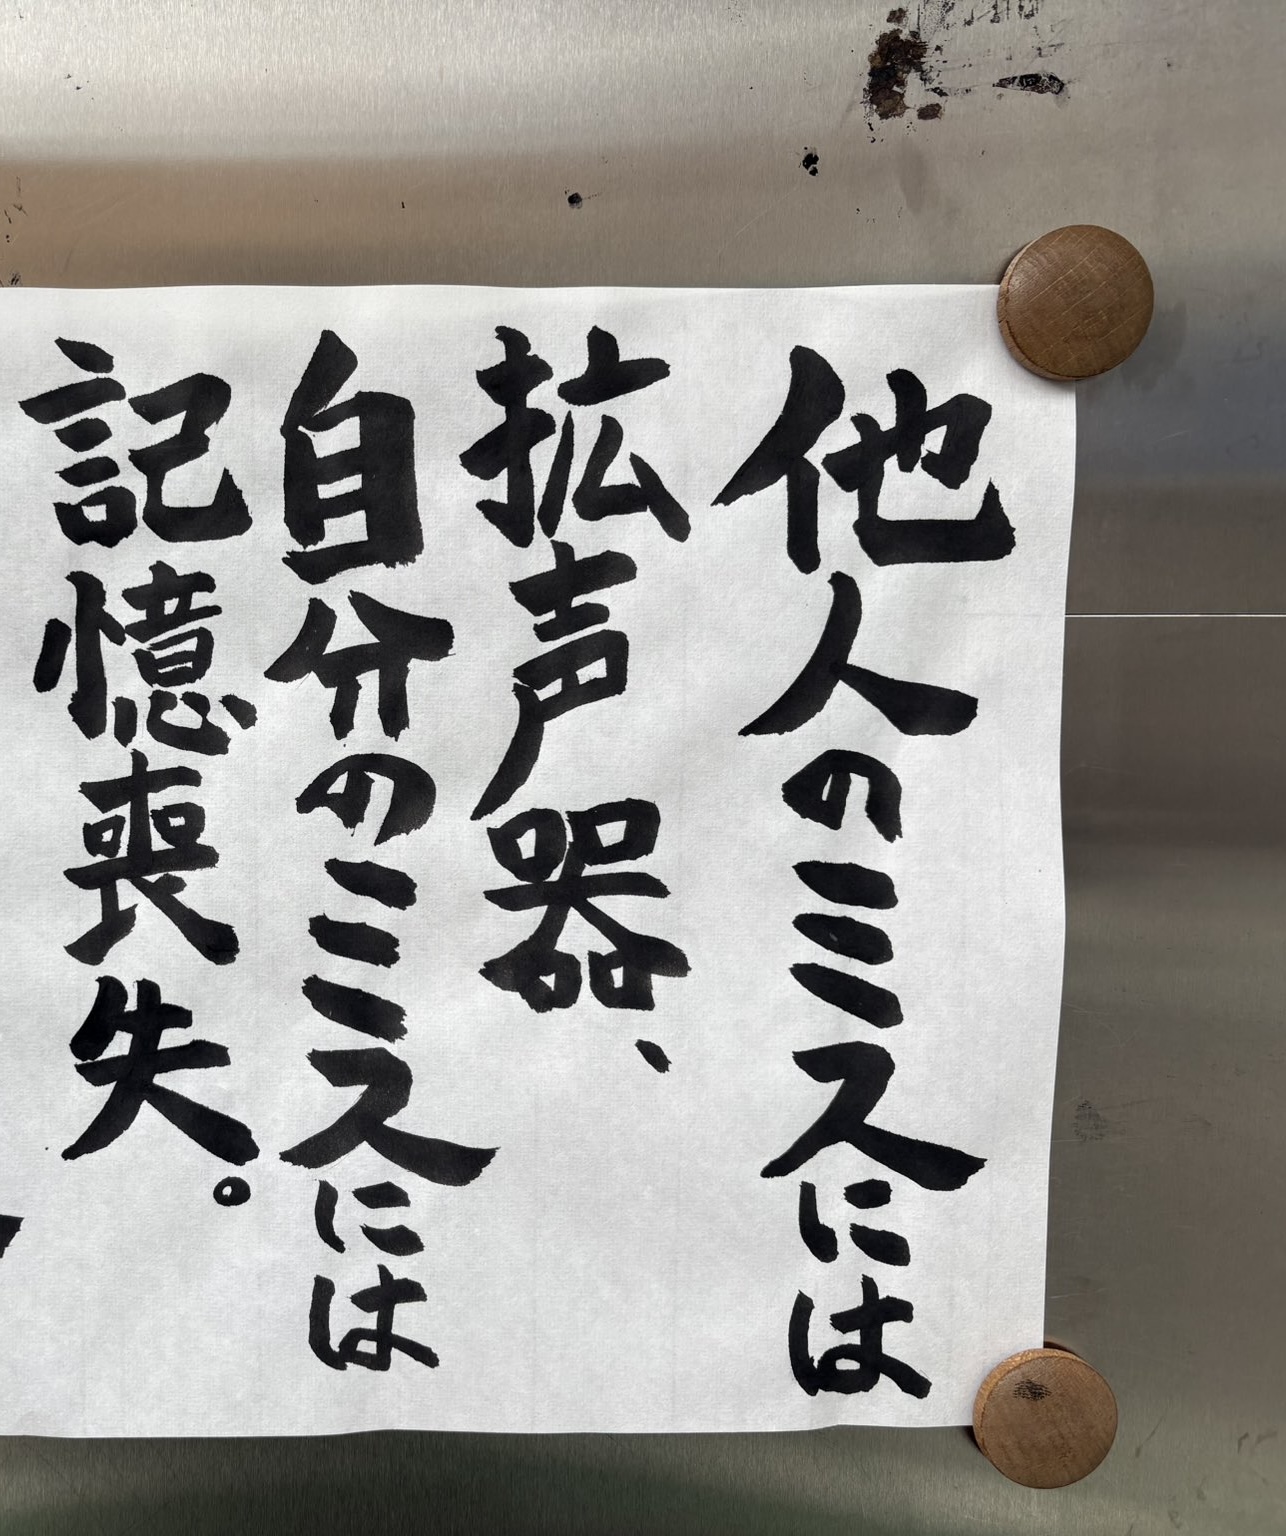 他人のミスには
拡声器、
自分のミスには
記憶喪失。